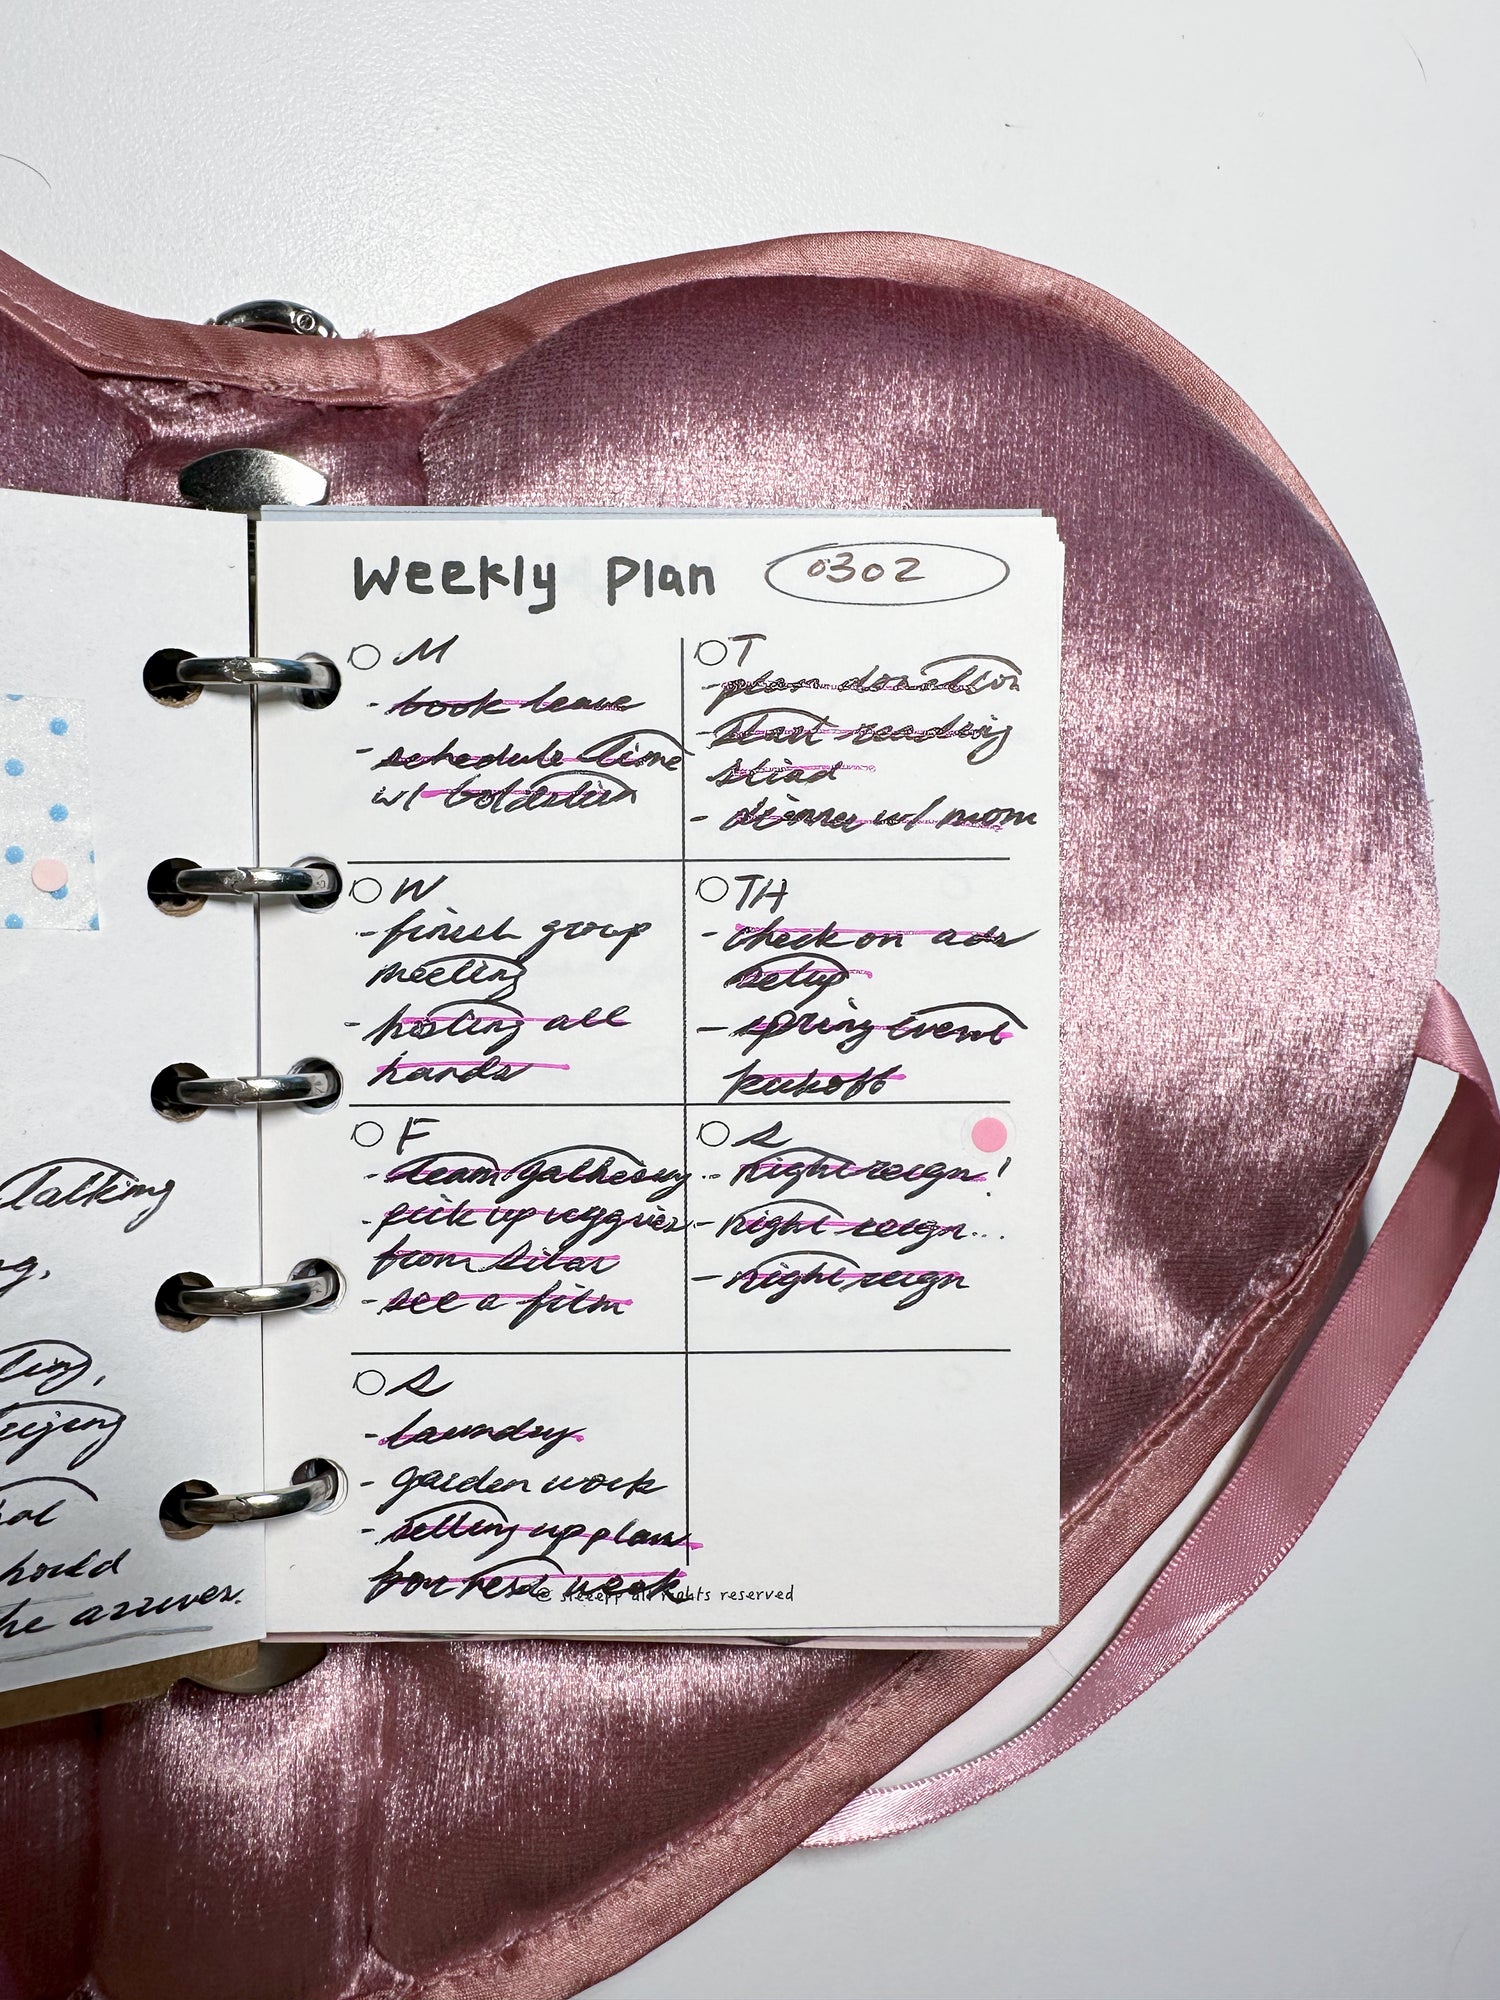 Talking
g.
ting,
hould
he answer.
Weekly Plan 0302
M
- book leave
- schedule time
w/ Goldstein
T
- plan donation
- start reading
Iliad
- dinner w/ mom
W
- finish group
meeting
- hosting all
hands
TH
- check on ads
setup
- spring event
kickoff
F
- team gathering
- pick up veggies
from
- see a film
S
- night reign!
- night reign...
- night reign
S
- laundry
- garden work
- setting up plan
for next week
© sleeepp all rights reserved